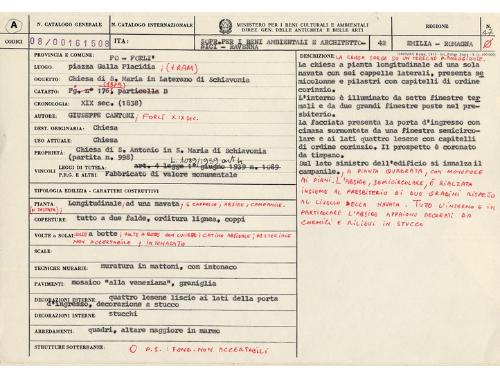 A
N. CATALOGO GENERALE
N. CATALOGO INTERNAZIONALE
MINISTERO PER I BENI CULTURALI E AMBIENTALI
DIREZ. GEN. DELLE ANTICHITÀ E BELLE ARTI
REGIONE
N.
CODICI 08/00161508
ITA:
SOPR.PER I BENI AMBIENTALI E ARCHITETTO-
NICI - RAVENNA
42
EMILIA - ROMAGNA
PROVINCIA E COMUNE: FO - FORLI'
LUOGO: piazza Galla Placidia
OGGETTO: Chiesa di S. Maria in Laterano di Schiavonia
CATASTO: Fg. 176, particella B
CRONOLOGIA: XIX sec. (1838)
AUTORE: GIUSEPPE CANTONI, FORLÌ XIX sec.
DEST. ORIGINARIA: Chiesa
USO ATTUALE: Chiesa
PROPRIETÀ: Chiesa di S. Antonio in S. Maria di Schiavonia
(partita n. 998)
VINCOLI LEGGI DI TUTELA: art. 4 legge 1° giugno 1939 n. 1089
P.R.G. E ALTRI: Fabbricato di valore monumentale
TIPOLOGIA EDILIZIA - CARATTERI COSTRUTTIVI
PIANTA: Longitudinale ad una navata; 6 CAPPELLE, ABSIDE, CAMPANILE.
COPERTURE: tutto a due falde, orditura lignea, coppi
VOLTE o SOLAI: a botte;
NON ACCERTABILE; INTONACATO
SCALE:
TECNICHE MURARIE: muratura in mattoni, con intonaco
PAVIMENTI: mosaico "alla veneziana", graniglia
DECORAZIONI ESTERNE: quattro lesene liscie ai lati della porta
d'ingresso, decorazione a stucco
DECORAZIONI INTERNE: stucchi
ARREDAMENTI: quadri, altare maggiore in marmo
STRUTTURE SOTTERRANEE: P.S.: FOND. NON ACCERTABILI
DESCRIZIONE: LA CHIESA SORGE SU UN TERRENO PIANEGGIANTE.
La chiesa a pianta longitudinale ad una sola
navata con sei cappelle laterali, presenta se
micolonne e pilastri con capitelli di ordine
corinzio.
L'interno è illuminato da sette finestre ter
mali e da due grandi finestre poste nel pre-
sbiterio.
La facciata presenta la porta d'ingresso con
cimasa sormontata da una finestra semicirco-
lare e ai lati quattro lesene con capitelli
di ordine corinzio. Il prospetto è coronato
da timpano.
Sul lato sinistro dell'edificio si innalza il
campanile, A PIANTA QUADRATA, CON MONOFORE
AI PIANI. L'ABSIDE, SEMICIRCOLARE, È RIALZATA
INSIEME AL PRESBITERIO DI DUE GRADINI RISPETTO
AL LIVELLO DELLA NAVATA. TUTTO L'INTERNO E IN
PARTICOLARE L'ABSIDE APPAIONO DECORATI DA
CORNICI E RILIEVI IN STUCCO